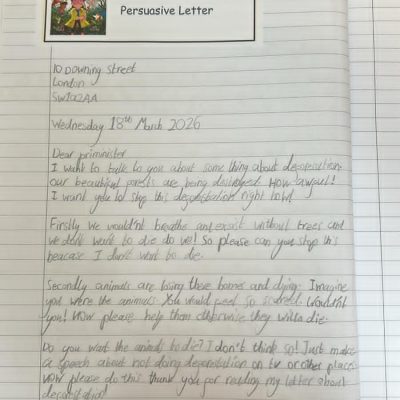 Persuasive Letter
10 Downing Street
London
SW1A2AA
Wednesday 18th March 2026
Dear priminister
I want to talk to you about some thing about deforestation.
our beautifull forests are being destroyed. How awful!
I want you to stop this deforestation right now!
Firstly we wouldn't breathe and exist without trees and
we don't want to die do we! So please can you stop this
because I don't want to die.
Secondly animals are losing these homes and dying. Imagine
you were the animals. You would feel so scared. Wouldn't
you! Now please help them otherwise they will die.
Do you want the animals to die? I don't think so! Just make
a speech about not doing deforestation on tv or other places
now please do this thank you for reading my letter about
deforestation!